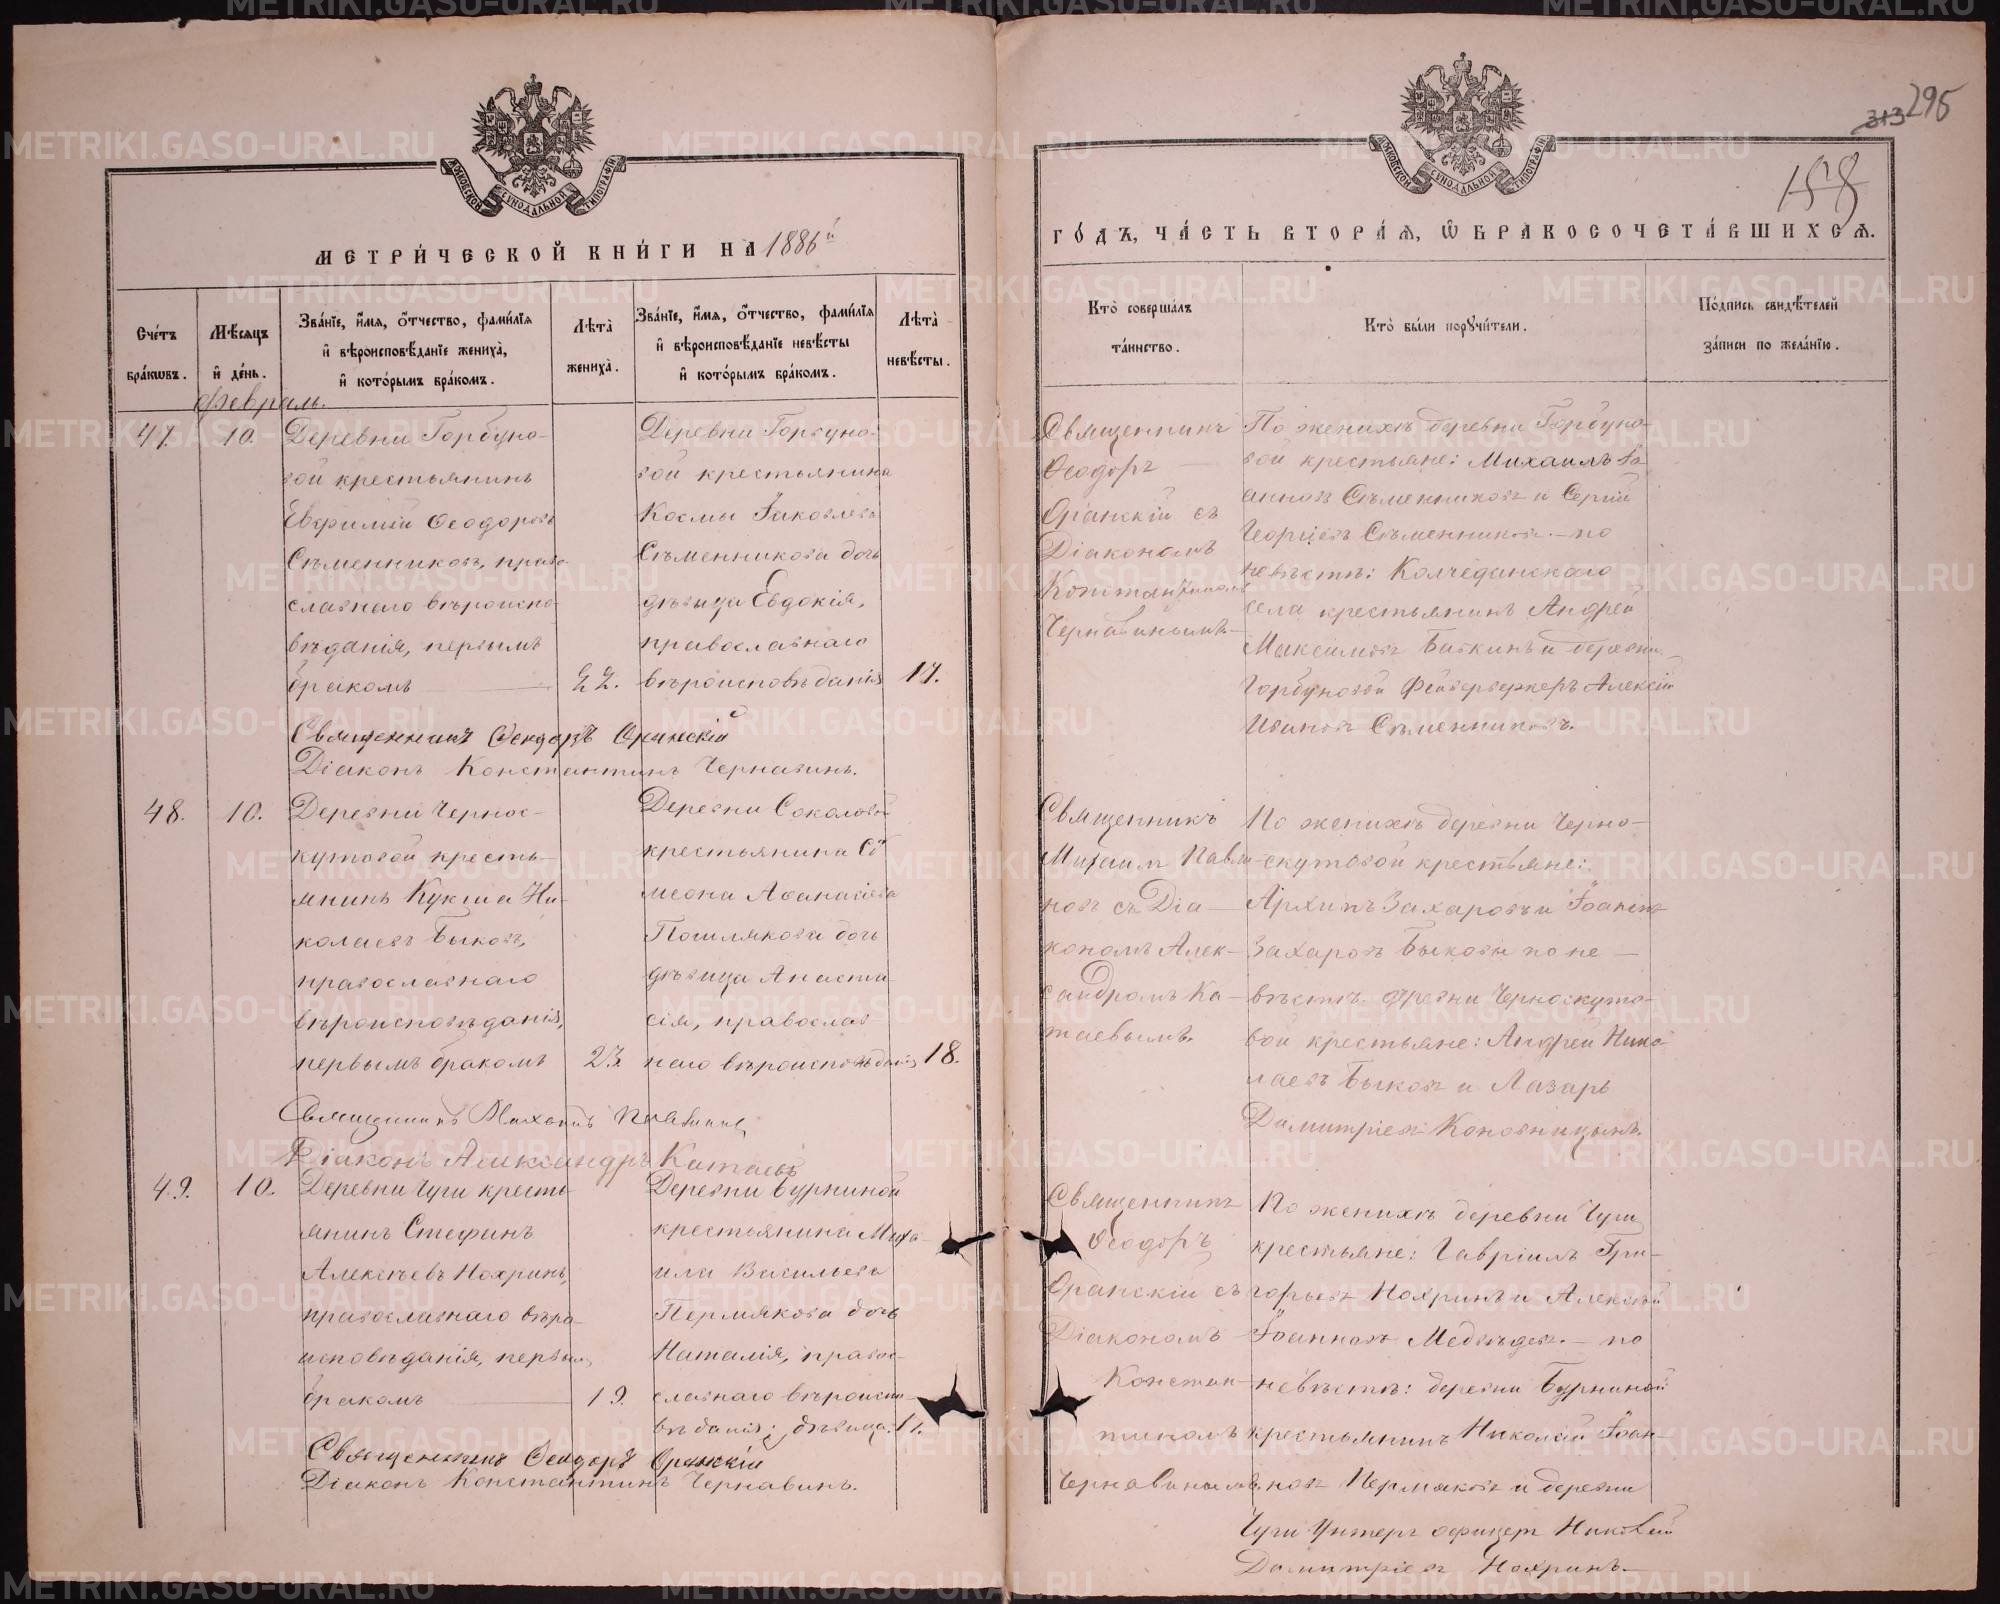 295
313
158
МОСКОВСКОЙ СѴНОДАЛЬНОЙ ТИПОГРАФІИ
МОСКОВСКОЙ СѴНОДАЛЬНОЙ ТИПОГРАФІИ
МЕТРИ́ЧЕСКОЙ КНИ́ГИ НА 1886й
ГО́ДЪ, ЧА́СТЬ ВТОРА́Я, Ѡ БРАКОСОЧЕТА́ВШИХСЯ.
Сче́тъ
бра́кѡвъ.
Мѣ́сяцъ
и҆ де́нь.
Зва́нїе, и҆́мя, ѻ҆́тчество, фами́лїя
и҆ вѣроисповѣ́данїе жениха̀,
и҆ кото́рымъ бра́комъ.
Лѣ́та
жениха̀.
Зва́нїе, и҆́мя, ѻ҆́тчество, фами́лїя
и҆ вѣроисповѣ́данїе невѣ́сты
и҆ кото́рымъ бра́комъ.
Лѣ́та
невѣ́сты.
Кто̀ соверша́лъ
та́инство.
Кто̀ бы́ли порꙋчи́тели.
По́дпись свидѣ́телей
за́писи по жела́нїю.
Февраль.
47.
10.
Деревни Горбуно-
вой крестьянинъ
Евфимій Ѳеодоровъ
Съменниковъ, право-
славнаго вѣроиспо-
вѣданія, первымъ
бракомъ
22.
Деревни Горбуно-
вой крестьянина
Космы Іаковлева
Съменникова дочь
дѣвица Евдокія,
православнаго
вѣроисповѣданія
17.
Священникъ
Ѳеодоръ
Оранскій съ
Діакономъ
Константиномъ
Чернавинымъ
По женихѣ деревни Горбуно-
вой крестьяне: Михаилъ Іо
анновъ Съменниковъ и Сергій
Георгіевъ Съменниковъ. – по
невѣстѣ: Колчеданскаго
села крестьянинъ Андрей
Максимовъ Бабкинъ и деревни
Горбуновой Фейерверкеръ Алексій
Ивановъ Съменниковъ.
Священникъ Ѳеодоръ Оранскій
Діаконъ Константинъ Чернавинъ.
48.
10.
Деревни Чернос-
кутовой кресть-
янинъ Кукша Ни-
колаевъ Быковъ,
православнаго
вѣроисповѣданія,
первымъ бракомъ
23.
Деревни Соколовой
крестьянина Сѵ
меона Аѳанасіева
Пошлякова дочь
дѣвица Анаста
сія, православ-
наго вѣроисповѣданія
18.
Священникъ
Михаилъ Павли-
новъ съ Діа-
кономъ Алек-
сандромъ Ка-
таевымъ.
По женихѣ деревни Черно-
скутовой крестьяне:
Архипъ Захаровъ и Іоаннъ
Захаровъ Быковы по не-
вѣстѣ деревни Черноскуто-
вой крестьяне: Андрей Нико
лаевъ Быковъ и Лазарь
Димитріевъ Коновницынъ.
Священникъ Михаилъ Павлиновъ
Діаконъ Александръ Катаевъ
49.
10.
Деревни Чуги кресть-
янинъ Стефанъ
Алексѣевъ Нохринъ,
православнаго вѣро-
исповѣданія, первым
бракомъ
19.
Деревни Бурниной
крестьянина Миха-
ила Васильева
Пермякова дочь
Наталія, правос-
славнаго вѣроиспо-
вѣданія; дѣвица.
Священникъ
Ѳеодоръ
Оранскій съ
Діакономъ
Констан-
тиномъ
Чернавинымъ.
По женихѣ деревни Чуги
крестьяне: Гавріилъ Гри-
горьевъ Нохринъ и Алексѣй
Іоанновъ Медвѣдев. – по
невѣстѣ: деревни Бурниной
крестьянинъ Николай Іоан-
новъ Пермяковъ и деревни
Чуги Унтеръ офицеръ Николай
Димитріевъ Нохринъ.
Священникъ Ѳеодоръ Оранскій
Діаконъ Константинъ Чернавинъ.
METRIKI.GASO-URAL.RU